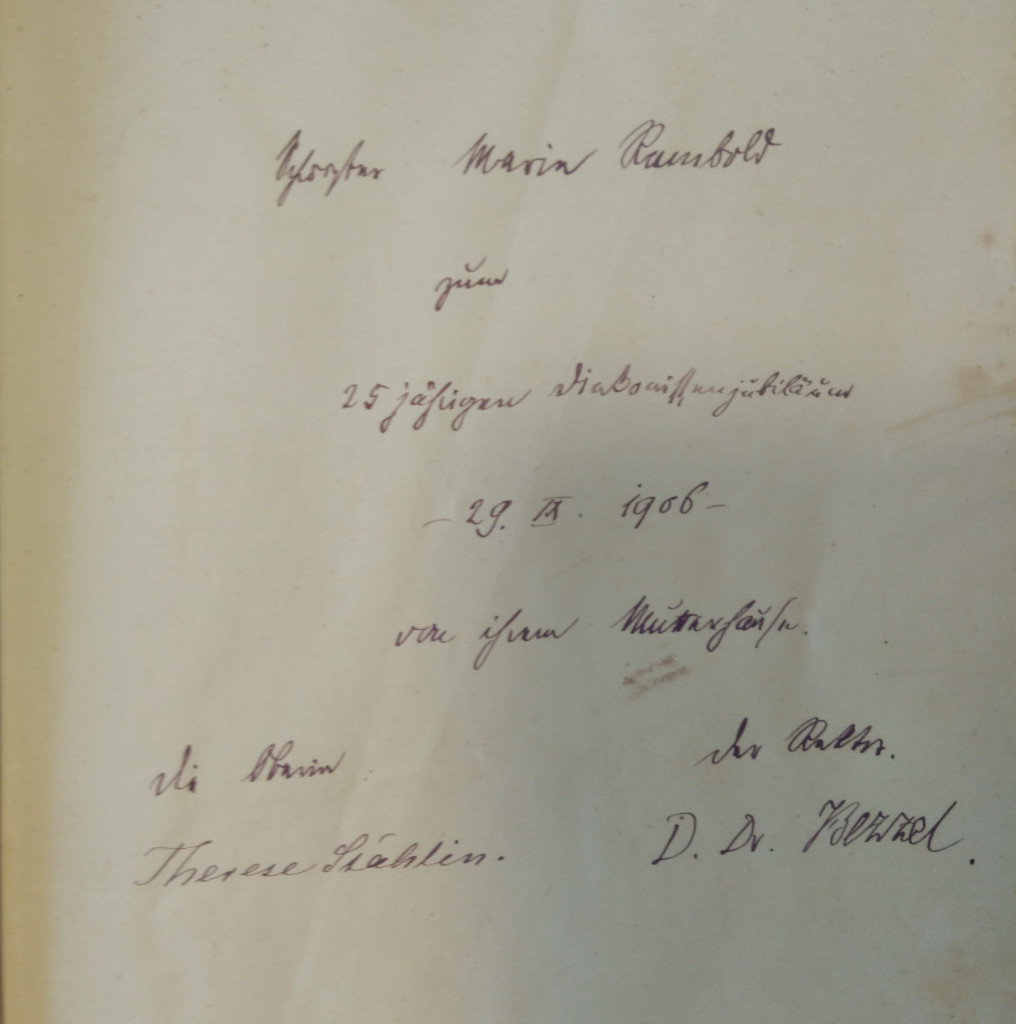 Schwester Marie Rambold
zum
25 jährigen Diakonissenjubiläum
- 29. IX. 1906 -
von ihrem Mutterhause.
Die Oberin
der Rektor.
Therese Stählin.
D. Dr. Bezzel.